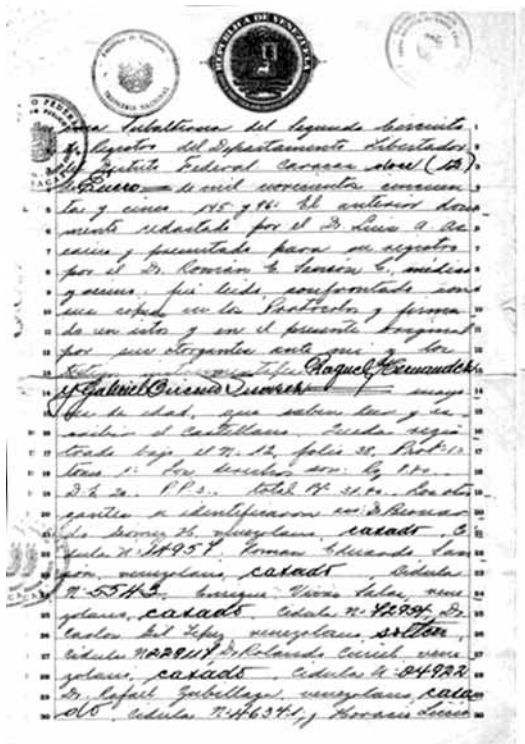 REPUBLICA DE VENEZUELA
IMPRENTA NACIONAL
Subalterna del Segundo Circuito
de Registro del Departamento Libertador
Distrito Federal Caracas doce (12)
de Enero de mil novecientos cincuen
ta y cinco 145 y 96: El anterior docu
mento redactado por el Dr. Luis A.
y presentado para su registro
por el Dr. Román E. C., médico
y fué leido, confrontado con
sus copias en los Protocolos y firma
do en estos y en el presente original
por sus otorgantes ante mi y los
testigos Raquel Hernandez
y Gabriel mayo
res de edad, que saben leer y es
cribir el Castellano. Queda regis
trado bajo el Nº 12, folio 38, Protº 1º
tomo 1º Los derechos son:
P.P. total Los otor
gantes se identificaron así: Dr
do Gomez venezolano, casado, Cé
dula Nº 14957, Roman Eduardo San
venezolano, casado Cédula
Nº 5543, Enrique Vivas Salas, vene
zolano, casado, Cédula Nº Dr.
Carlos Gil Yepez venezolano, soltero,
Cédula Nº Dr Rolando Curiel, vene
zolano, casado, Cédula Nº 04922
Dr. Rafael venezolano, casa
do, Cédula Nº 46341, y Horacio